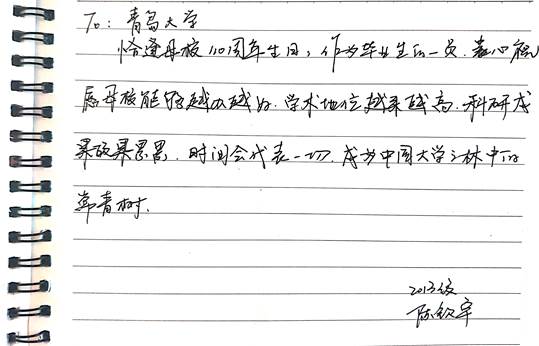 To：青岛大学
恰逢母校110周年生日，作为毕业生的一员，衷心祝
愿母校能够越办越好，学术地位越来越高，科研成
果硕果累累，时间会代表一切，成为中国大学之林中的
常青树．
2013级
陈钦宇